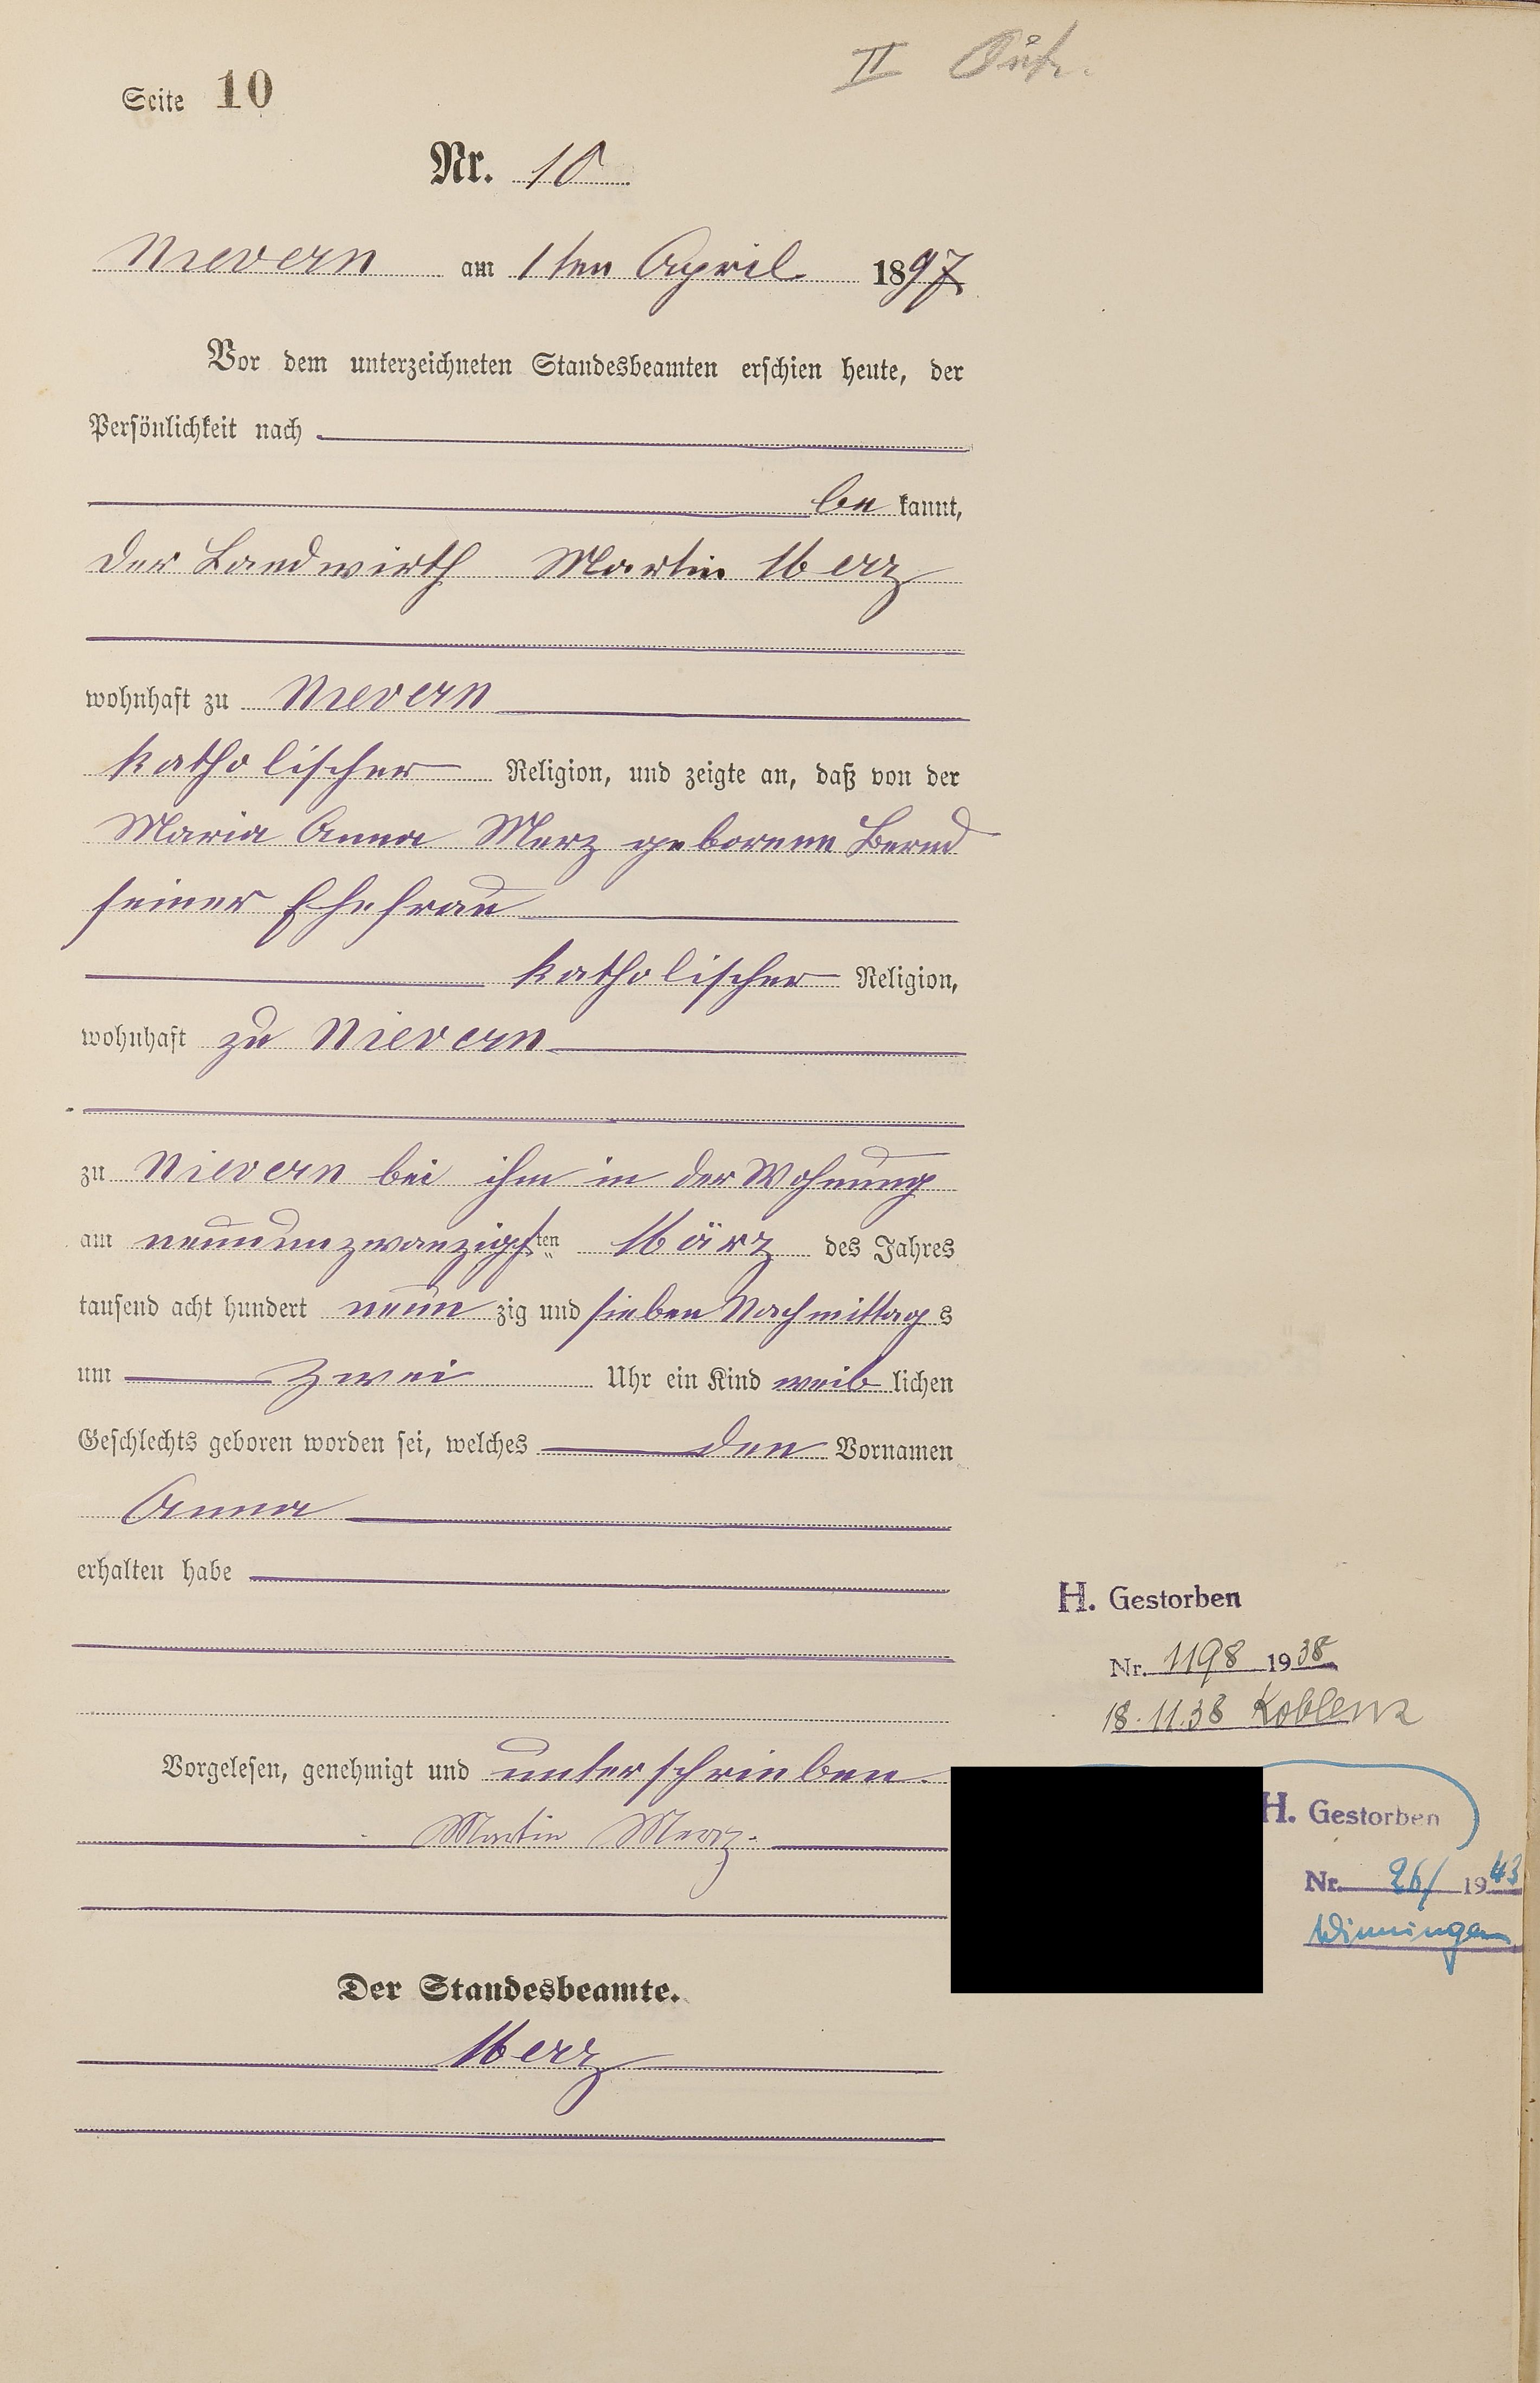 Seite 10
II
Nr. 10
Nievern am 1ten April 1897
Vor dem unterzeichneten Standesbeamten erschien heute, der
Persönlichkeit nach
be kannt,
der Landwirth Martin Merz
wohnhaft zu Nievern
katholischer Religion, und zeigte an, daß von der
Maria Anna Merz geborene Bernd
seiner Ehefrau
katholischer Religion,
wohnhaft zu Nievern
zu Nievern bei ihm in der Wohnung
am neunundzwanzigsten März des Jahres
tausend acht hundert neun zig und sieben Nachmittag s
um zwei Uhr ein Kind weib lichen
Geschlechts geboren worden sei, welches den Vornamen
Anna
erhalten habe
Vorgelesen, genehmigt und unterschrieben.
Martin Merz.
Der Standesbeamte.
Merz
H. Gestorben
Nr. 1198 1938
18.11.38 Koblenz
H. Gestorben
Nr. 26/ 1943
Winningen